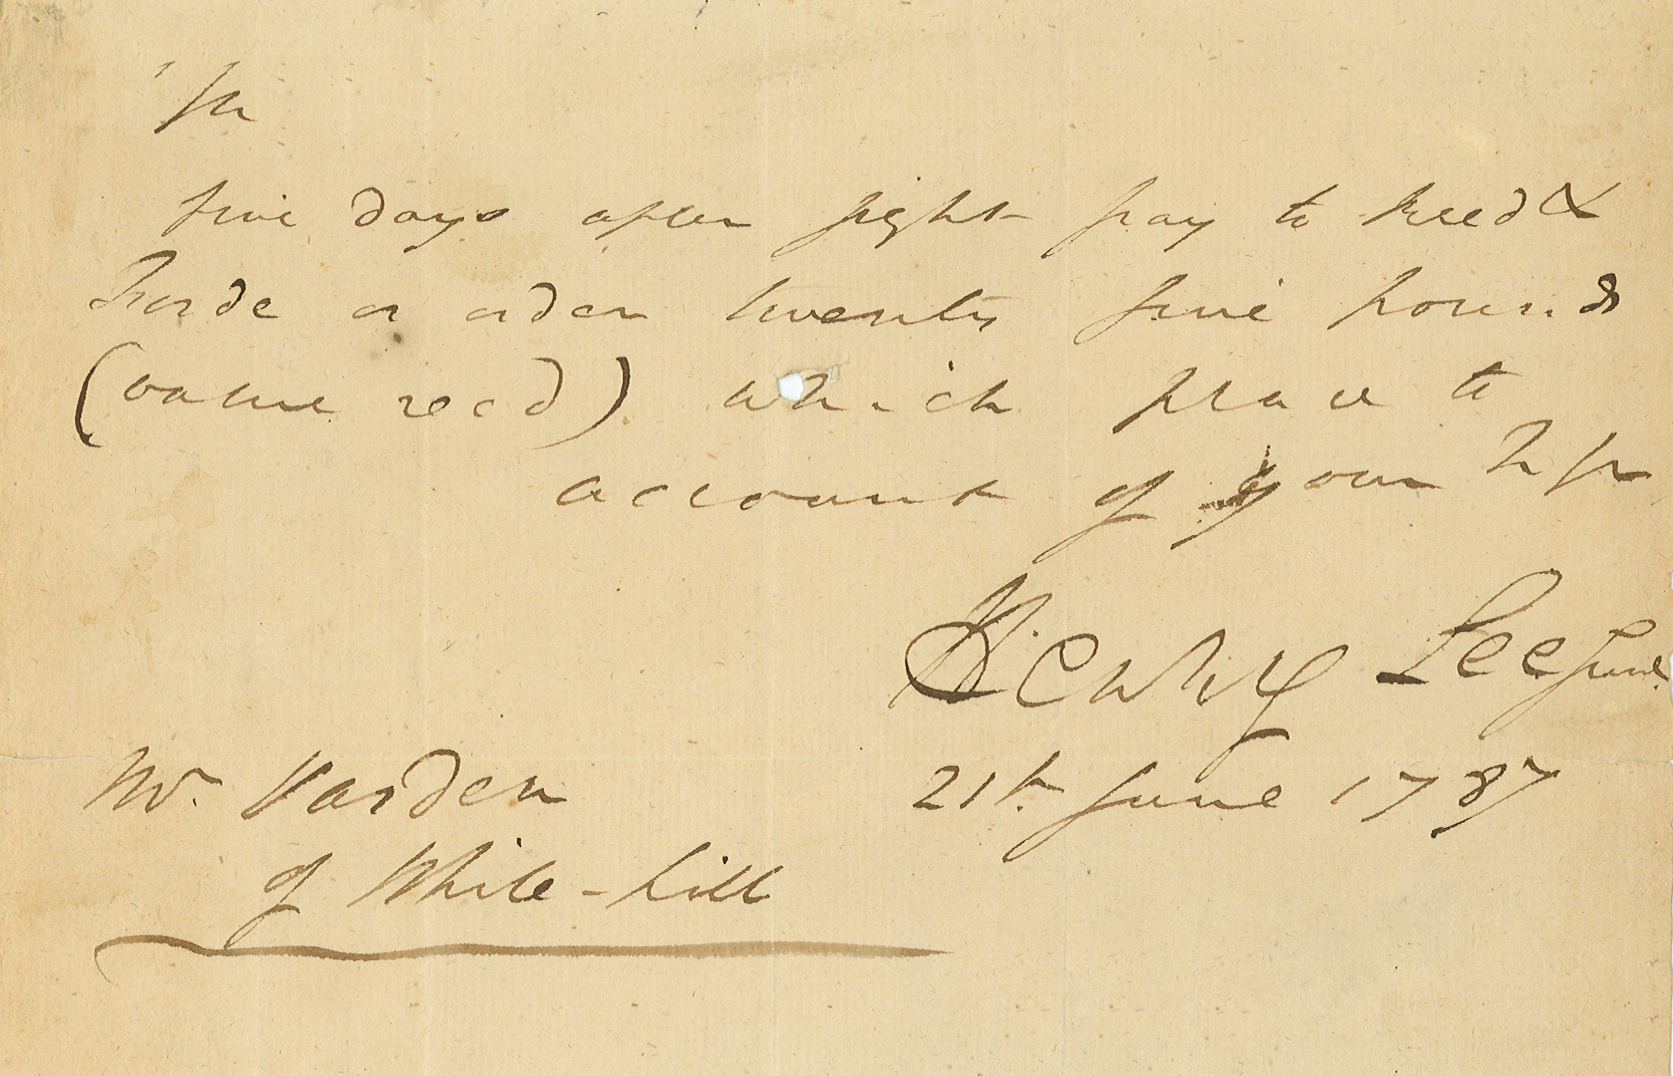 Sir
five days after sight pay to Reed &
Forde or order twenty five pounds
(value recd) which place to
account of your h Sr
Henry Lee Junr
Mr. Varden 21t. June 1787
of White-hill